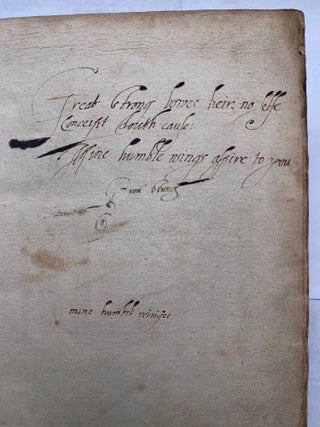 Great Strong bowes heir no
Conceist douth cause
humble wings aspire to you
Great Strong
mine humbl winges